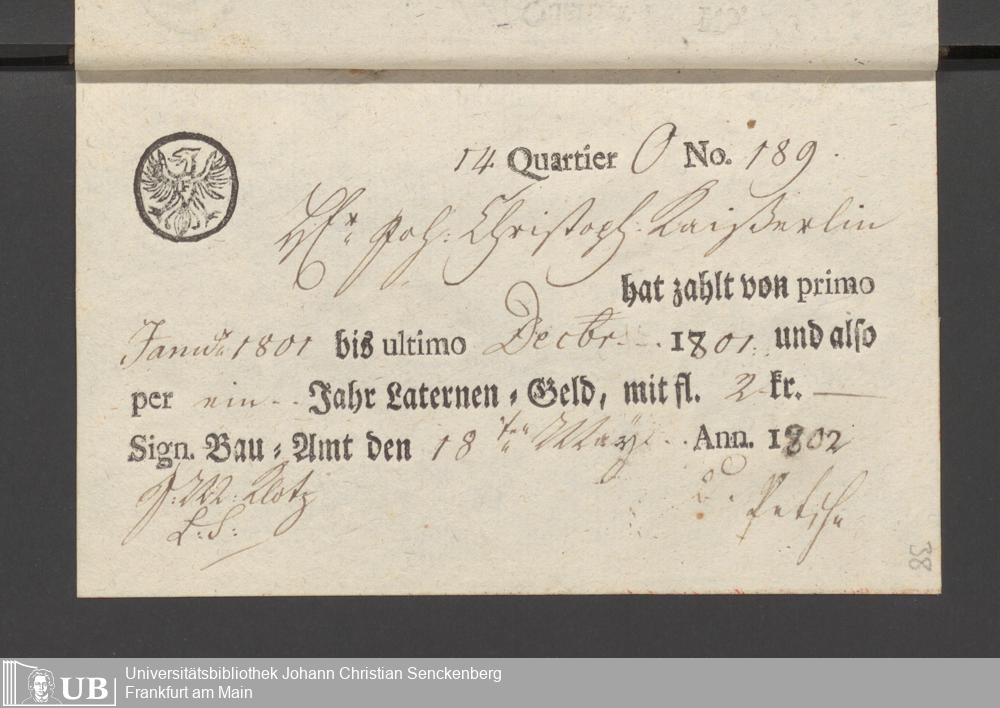 14 Quartier O No. 189.
Hr. Joh: Christoph Kaißerlin
hat zahlt von primo
Janu 1801 bis ultimo Decbr. 1801. und also
per ein Jahr Laternen-Geld, mit fl. 2 kr. —
Sign. Bau-Amt den 18ten May Ann. 1802
J: M: Klotz
L: S:
38
UB
Universitätsbibliothek Johann Christian Senckenberg
Frankfurt am Main